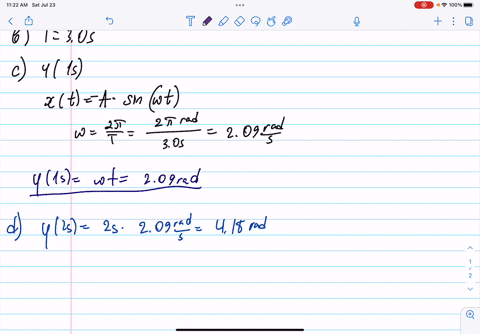 11:22 AM Sat Jul 23
100%
b) T = 3.0s
c) φ(1s)
x(t) = A · sin(ωt)
ω = 2π/T = 2π rad/3.0s = 2.09 rad/s
φ(1s) = ωt = 2.09 rad
d) φ(2s) = 2s · 2.09 rad/s = 4.18 rad
1
2